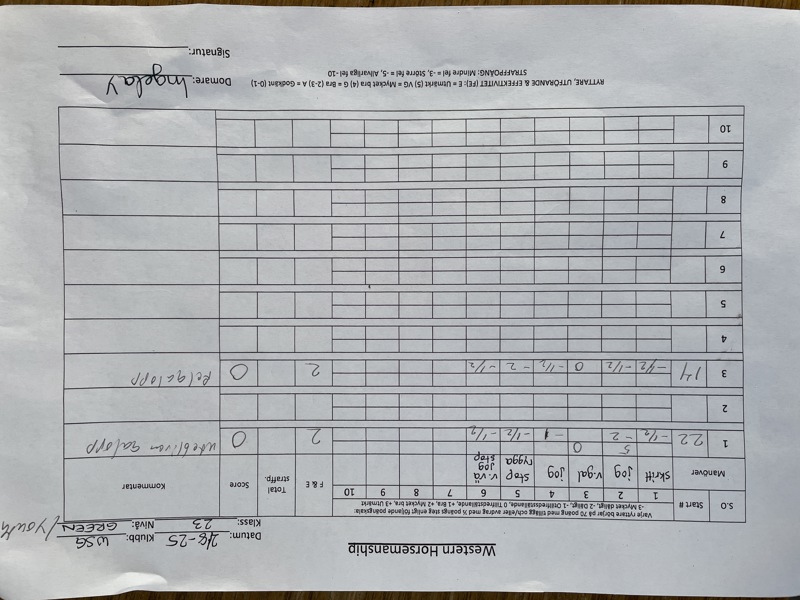 Western Horsemanship
Datum: 2/8-25 Klubb: WSG
Klass: 23 Nivå: GREEN / Youth
Varje ryttare börjar på 70 poäng med tillägg och/eller avdrag med ½ poängs steg enligt följande poängskala:
-3 Mycket dåligt, -2 Dåligt, -1 Otillfredsställande, 0 Tillfredsställande, +1 Bra, +2 Mycket bra, +3 Utmärkt
S.O. Start # 1 2 3 4 5 6 7 8 9 10 F & E Total straffp. Score Kommentar
Manöver skritt jog v.gal jog stop rygga v. vä jog stop
1 22 -1/2 5 -2 0 -1 -1/2 -1/2 2 0 utebliven galopp
2
3 14 -1/2 -1/2 0 -1/2 -2 -1/2 2 0 Felgalopp
4
5
6
7
8
9
10
RYTTARE, UTFÖRANDE & EFFEKTIVITET (FE): E = Utmärkt (5) VG = Mycket bra (4) G = Bra (2-3) A = Godkänt (0-1)
STRAFFPOÄNG: Mindre fel = -3, Större fel = -5, Allvarliga fel -10
Domare: Ingela Y
Signatur: